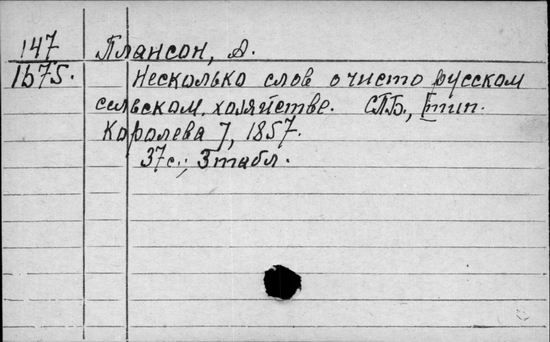 147 Плансон, А.
1675. Несколько слов о чисто русском
сельском хозяйстве. СПБ., [тип.
Королева], 1857.
37с.; 3 табл.